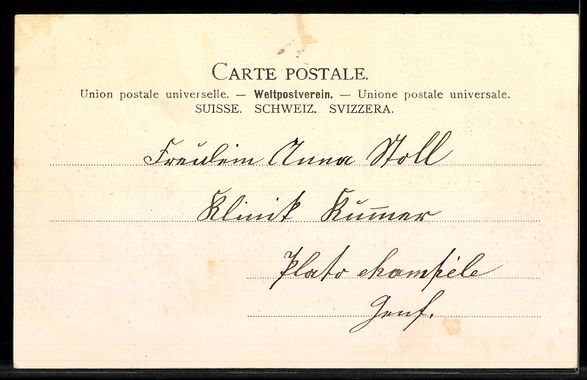 CARTE POSTALE.
Union postale universelle. — Weltpostverein. — Unione postale universale.
SUISSE. SCHWEIZ. SVIZZERA.
Freulein Anna Stoll
Klinik Kum̅er
Plato champèle
Genf.